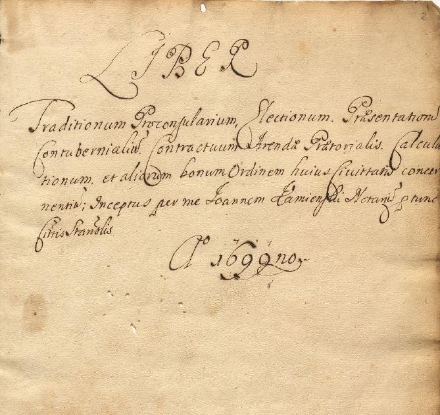 LIBER
Traditionum Proconsularium, Electionum. Præsentationū
Contubernialiū Contractuum Arendæ Prætorialis. Calcula
tionum, et aliorum bonum Ordinem huius Civittatis concer
nentiū; Inceptus per me Joannem Notariū ptunc
Ao 1699no.